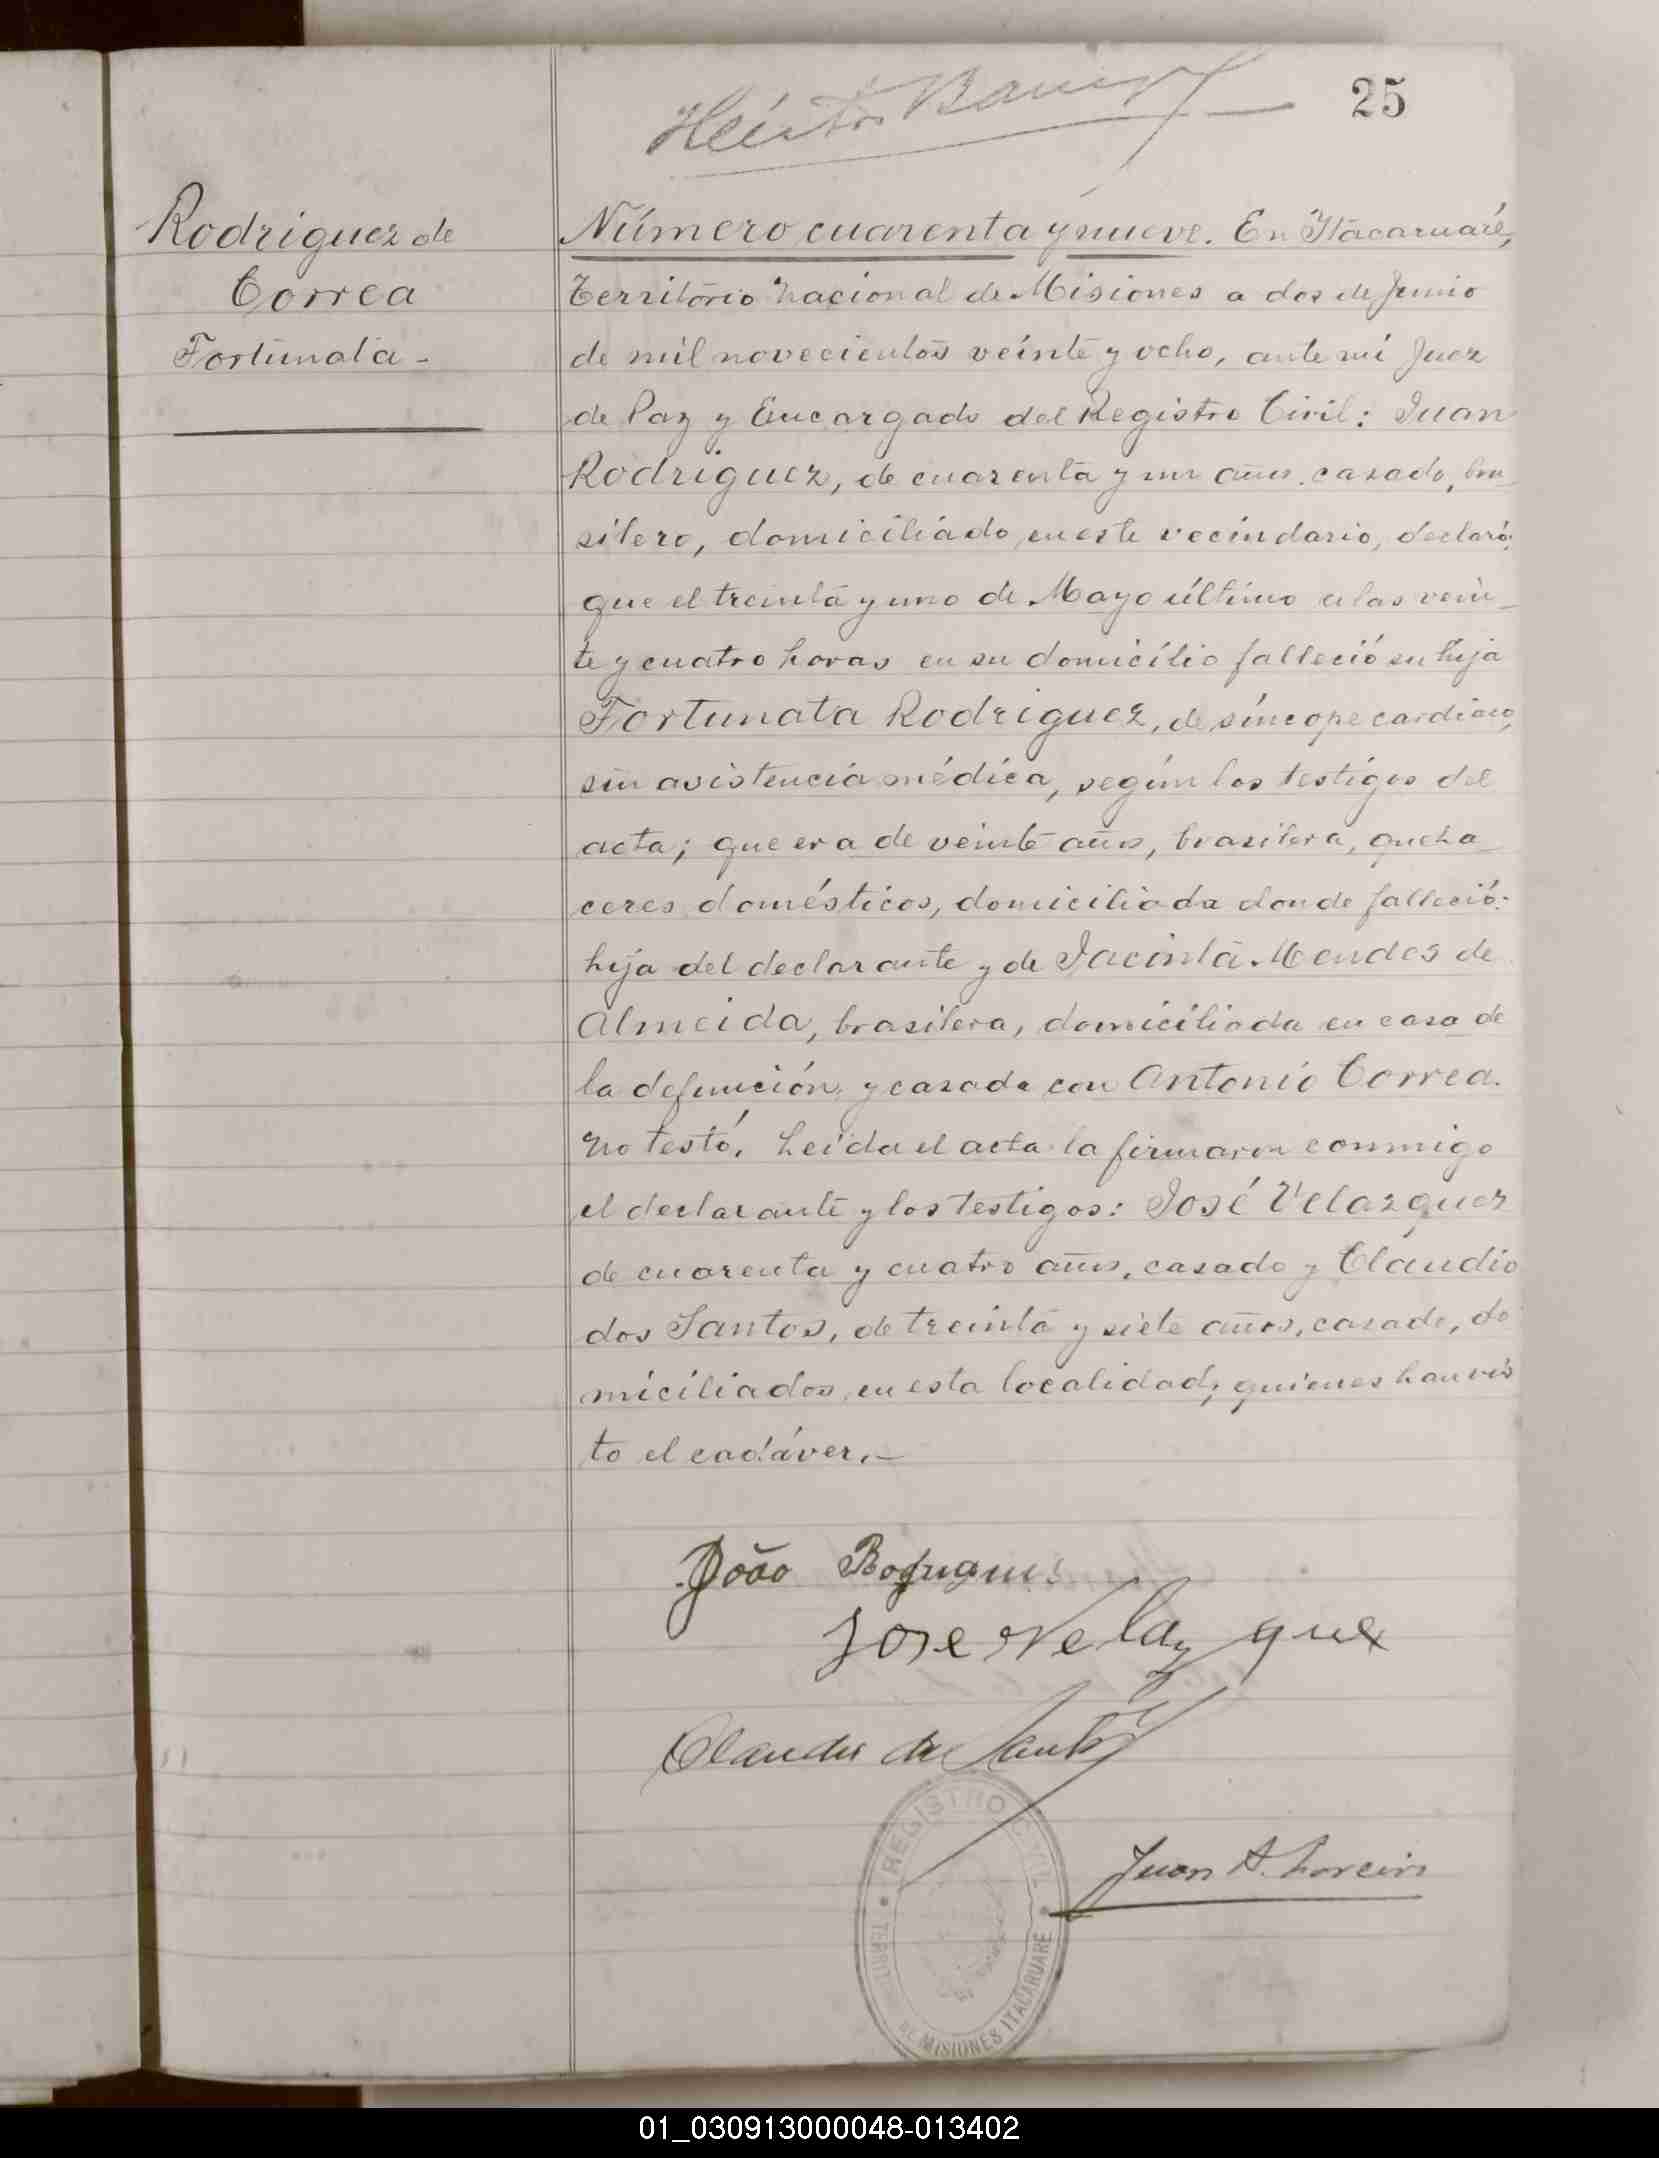 25
Rodriguez de
Correa
Fortunata -
Número cuarenta y nueve. En Itacaruaré,
Territorio Nacional de Misiones a dos de Junio
de mil novecientos veinte y ocho, ante mi Juez
de Paz y Encargado del Registro Civil: Juan
Rodriguez, de cuarenta y un años, casado, bra_
silero, domiciliado en este vecindario, declaró:
que el treinta y uno de Mayo último a las vein_
te y cuatro horas en su domicilio falleció su hija
Fortunata Rodriguez, de síncope cardiaco,
sin asistencia médica, según los testigos del
acta; que era de veinte años, brasilera, queha_
ceres domésticos, domiciliada donde falleció:
hija del declarante y de Jacinta Mendes de
Almeida, brasilera, domiciliada en casa de
la defunción, y casada con Antonio Correa.
No testó. Leída el acta la firmaron conmigo
el declarante y los testigos: José Velazquez
de cuarenta y cuatro años, casado y Claudio
dos Santos, de treinta y siete años, casado, do
miciliados en esta localidad; quienes han vis
to el cadáver.-
João
Jose Velazquez
Juan A.
REGISTRO CIVIL
MISIONES ITACARUARE
01_030913000048-013402